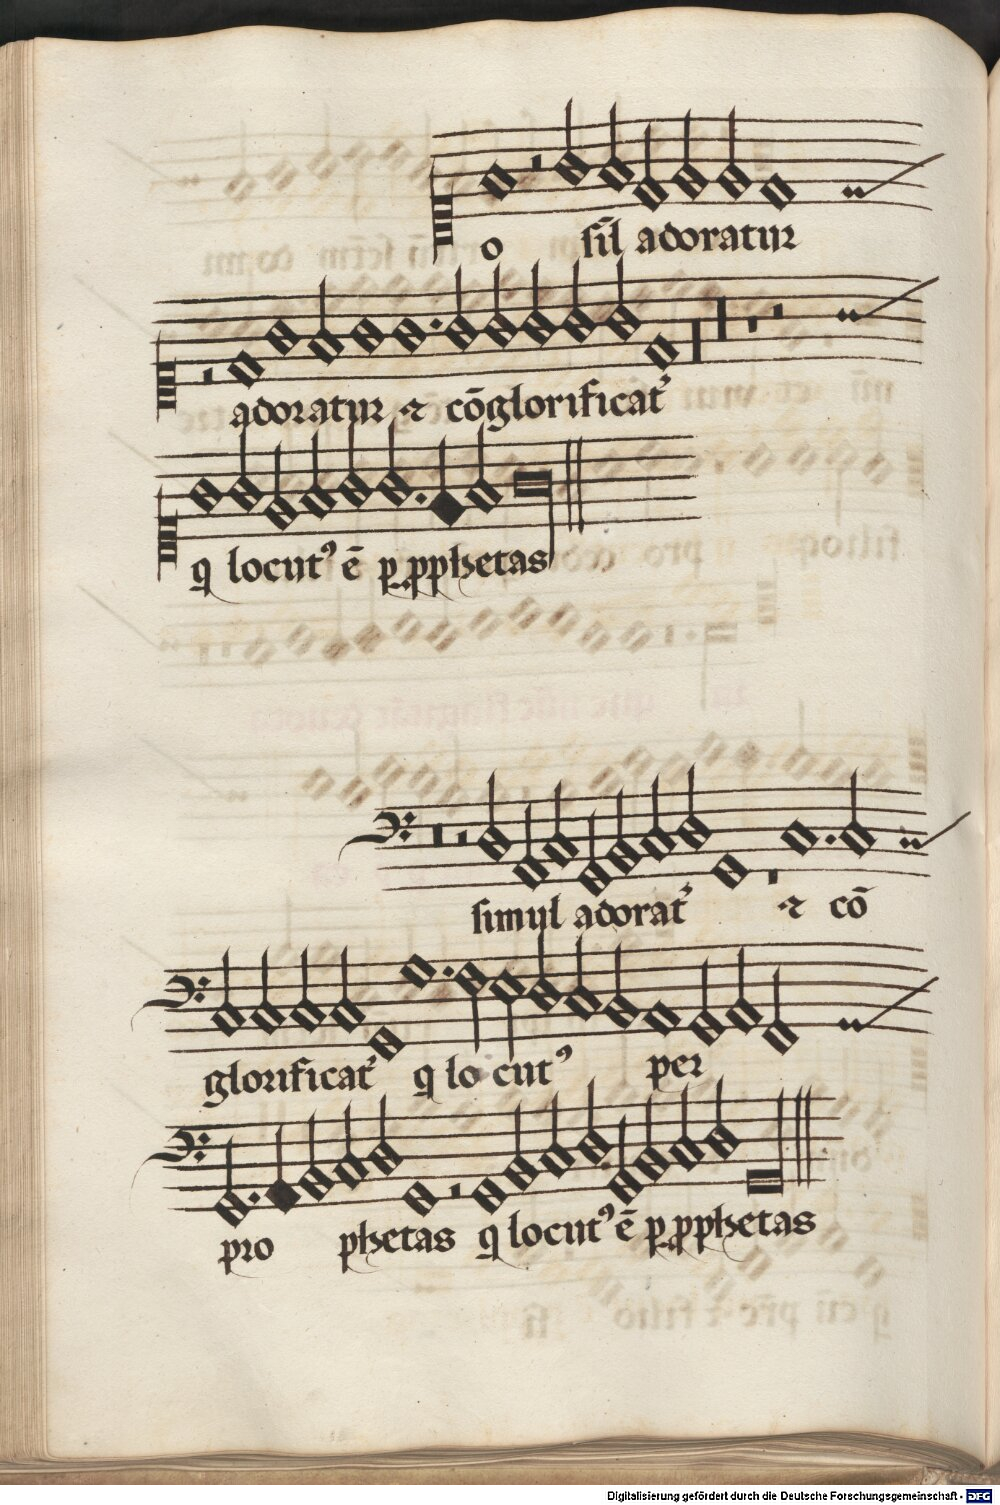 o sil̄ adoratur
adoratur ⁊ cōglorificat᾽
q locut⁹ ē ꝑ ꝓphetas
simul adorat᾽ ⁊ cō
glorificat᾽ q lo cut⁹ per
pro phetas q locut⁹ ē ꝑ ꝓphetas
Digitalisierung gefördert durch die Deutsche Forschungsgemeinschaft - DFG